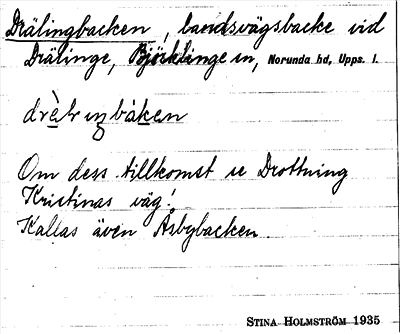 Drälingbacken, landsvägsbacke vid
Drälinge, Björklinge sn, Norunda hd, Upps. l.
drè̱lıŋbàken
Om dess tillkomst se Drottning
Kristinas väg!
Kallas även Åsbybacken.
STINA HOLMSTRÖM 1935